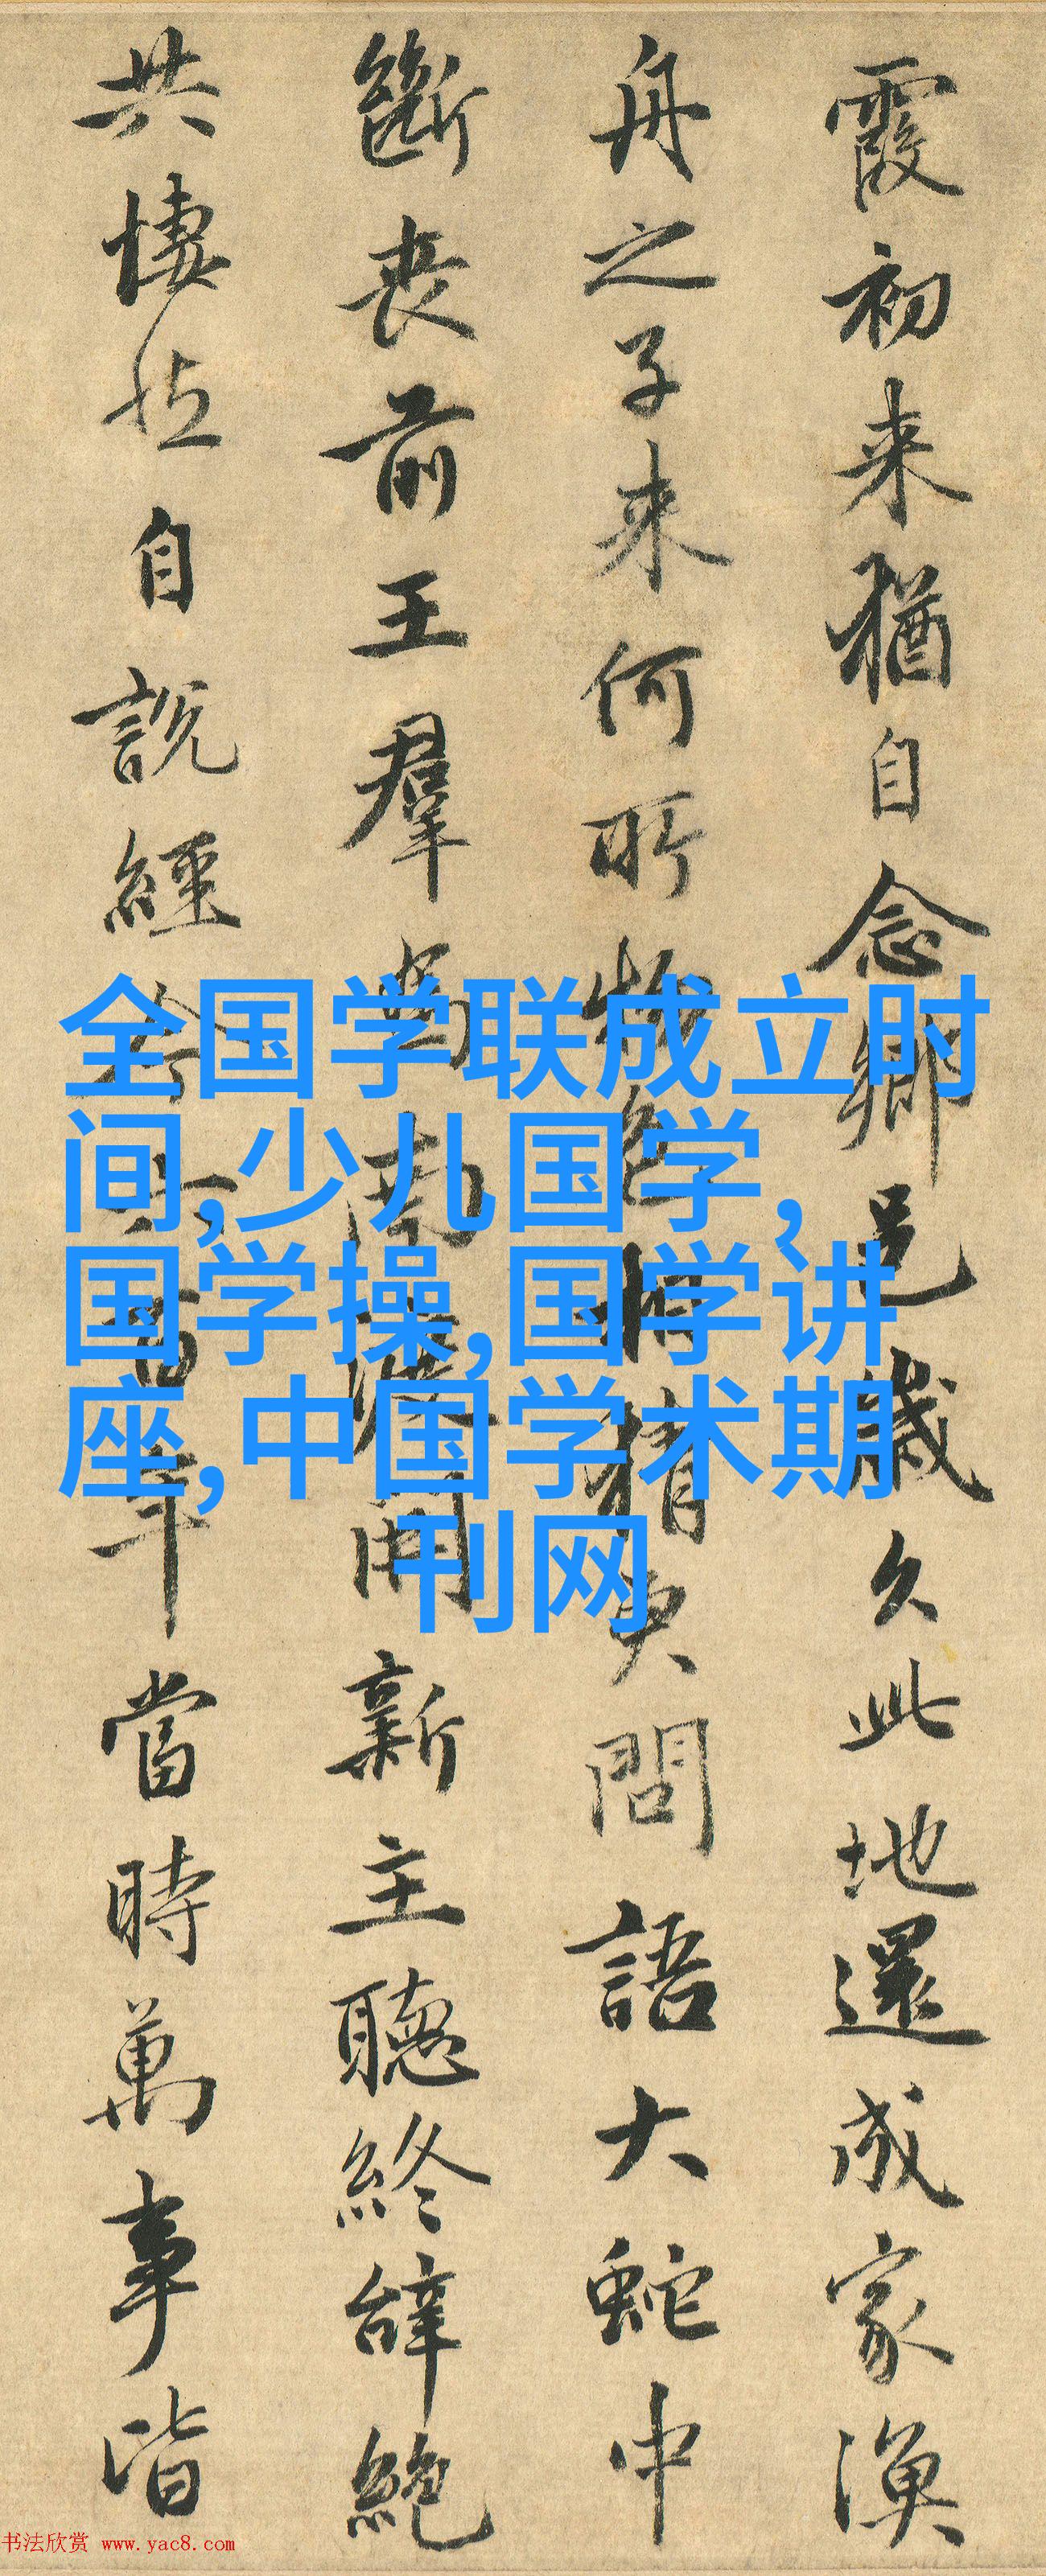 霞初来猶自念鄉邑歲久此地還成家漁
舟之子来何所物色相猜更問語大蛇中
斷喪前王羣馬南渡開新主聽終辞絶
共悽然自說經今六百年當時萬事皆
全国学联成立时
间,少儿国学,
国学操,国学讲
座,中国学术期
刊网
书法欣赏 www.yac8.com